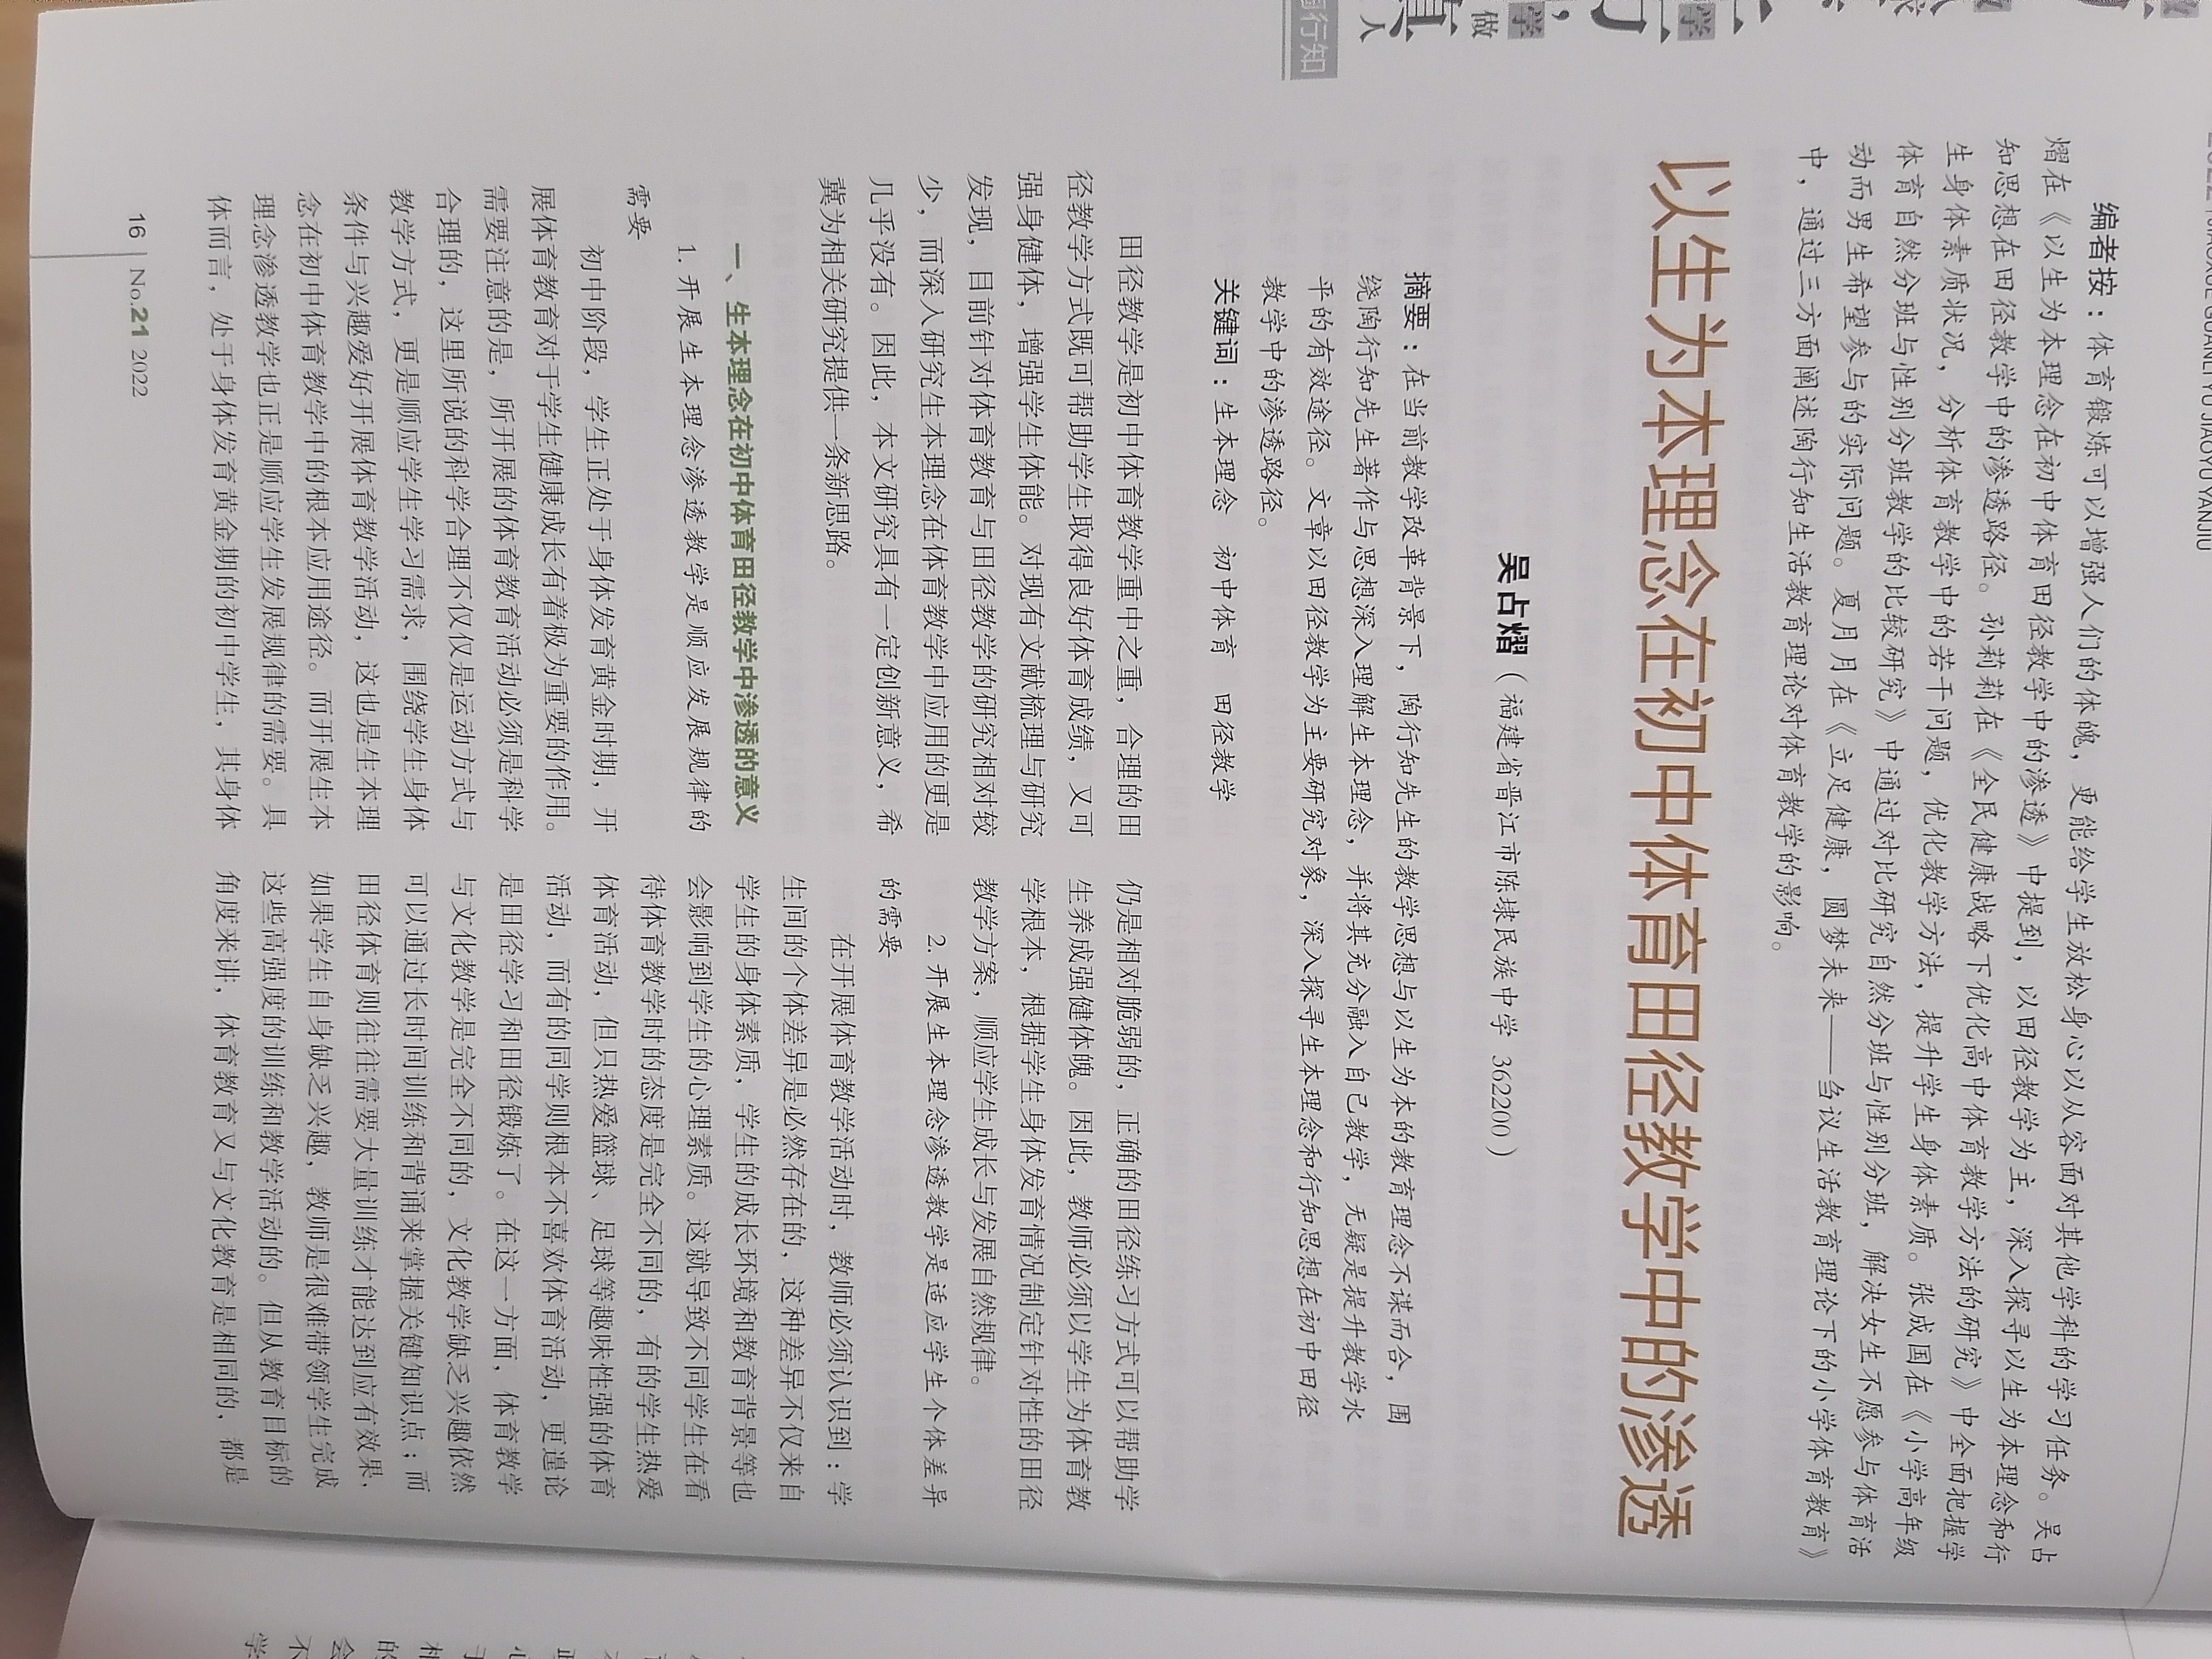 编者按：体育锻炼可以增强人们的体魄，更能给学生放松身心以从容面对其他学科的学习任务。吴占
熠在《以生为本理念在初中体育田径教学中的渗透》中提到，以田径教学为主，深入探寻以生为本理念和行
知思想在田径教学中的渗透路径。孙莉莉在《全民健康战略下优化高中体育教学方法的研究》中全面把握学
生身体素质状况，分析体育教学中的若干问题，优化教学方法，提升学生身体素质。张成国在《小学高年级
体育自然分班与性别分班教学的比较研究》中通过对比研究自然分班与性别分班，解决女生不愿参与体育活
动而男生希望参与的实际问题。夏月月在《立足健康，圆梦未来——刍议生活教育理论下的小学体育教育》
中，通过三方面阐述陶行知生活教育理论对体育教学的影响。
以生为本理念在初中体育田径教学中的渗透
吴占熠（福建省晋江市陈埭民族中学 362200）
摘要：在当前教学改革背景下，陶行知先生的教学思想与以生为本的教育理念不谋而合，围
绕陶行知先生著作与思想深入理解生本理念，并将其充分融入自己教学，无疑是提升教学水
平的有效途径。文章以田径教学为主要研究对象，深入探寻生本理念和行知思想在初中田径
教学中的渗透路径。
关键词：生本理念 初中体育 田径教学
田径教学是初中体育教学重中之重，合理的田
径教学方式既可帮助学生取得良好体育成绩，又可
强身健体，增强学生体能。对现有文献梳理与研究
发现，目前针对体育教育与田径教学的研究相对较
少，而深入研究生本理念在体育教学中应用的更是
几乎没有。因此，本文研究具有一定创新意义，希
冀为相关研究提供一条新思路。
一、生本理念在初中体育田径教学中渗透的意义
1. 开展生本理念渗透教学是顺应发展规律的
需要
初中阶段，学生正处于身体发育黄金时期，开
展体育教育对于学生健康成长有着极为重要的作用。
需要注意的是，所开展的体育教育活动必须是科学
合理的，这里所说的科学合理不仅仅是运动方式与
教学方式，更是顺应学生学习需求，围绕学生身体
条件与兴趣爱好开展体育教学活动，这也是生本理
念在初中体育教学中的根本应用途径。而开展生本
理念渗透教学也正是顺应学生发展规律的需要。具
体而言，处于身体发育黄金期的初中学生，其身体
仍是相对脆弱的，正确的田径练习方式可以帮助学
生养成强健体魄。因此，教师必须以学生为体育教
学根本，根据学生身体发育情况制定针对性的田径
教学方案，顺应学生成长与发展自然规律。
2. 开展生本理念渗透教学是适应学生个体差异
的需要
在开展体育教学活动时，教师必须认识到：学
生间的个体差异是必然存在的，这种差异不仅来自
学生的身体素质，学生的成长环境和教育背景等也
会影响到学生的心理素质。这就导致不同学生在看
待体育教学时的态度是完全不同的，有的学生热爱
体育活动，但只热爱篮球、足球等趣味性强的体育
活动，而有的同学则根本不喜欢体育活动，更遑论
是田径学习和田径锻炼了。在这一方面，体育教学
与文化教学是完全不同的，文化教学缺乏兴趣依然
可以通过长时间训练和背诵来掌握关键知识点；而
田径体育则往往需要大量训练才能达到应有效果，
如果学生自身缺乏兴趣，教师是很难带领学生完成
这些高强度的训练和教学活动的。但从教育目标的
角度来讲，体育教育又与文化教育是相同的，都是
16 | No.21 2022